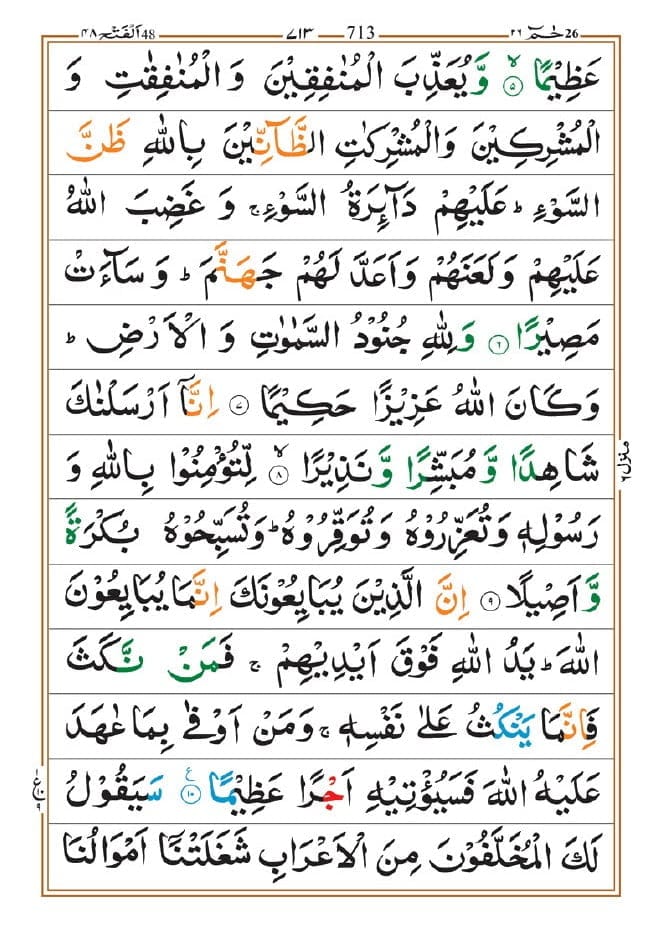 26 حٰمٓ ٢٦ — 713 — ٧١٣ — 48 اَلْفَتْح ٤٨
عَظِيْمًا ۙ‏﴿۵﴾ وَّ يُعَذِّبَ الْمُنٰفِقِيْنَ وَ الْمُنٰفِقٰتِ وَ
الْمُشْرِكِيْنَ وَالْمُشْرِكٰتِ الظَّآنِّيْنَ بِاللّٰهِ ظَنَّ
السَّوْءِ ؕ عَلَيْهِمْ دَآئِرَةُ السَّوْءِ ۚ وَ غَضِبَ اللّٰهُ
عَلَيْهِمْ وَ لَعَنَهُمْ وَ اَعَدَّ لَهُمْ جَهَنَّمَ ؕ وَ سَآءَتْ
مَصِيْرًا ﴿۶﴾ وَ لِلّٰهِ جُنُوْدُ السَّمٰوٰتِ وَ الْاَرْضِ ؕ
وَ كَانَ اللّٰهُ عَزِيْزًا حَكِيْمًا ﴿۷﴾ اِنَّاۤ اَرْسَلْنٰكَ
شَاهِدًا وَّ مُبَشِّرًا وَّ نَذِيْرًا ۙ﴿۸﴾ لِّتُؤْمِنُوْا بِاللّٰهِ وَ
رَسُوْلِهٖ وَ تُعَزِّرُوْهُ وَ تُوَقِّرُوْهُ ؕ وَ تُسَبِّحُوْهُ بُكْرَةً
وَّ اَصِيْلًا ﴿۹﴾ اِنَّ الَّذِيْنَ يُبَايِعُوْنَكَ اِنَّمَا يُبَايِعُوْنَ
اللّٰهَ ؕ يَدُ اللّٰهِ فَوْقَ اَيْدِيْهِمْ ۚ فَمَنْ نَّكَثَ
فَاِنَّمَا يَنْكُثُ عَلٰى نَفْسِهٖ ۚ وَ مَنْ اَوْفٰى بِمَا عٰهَدَ
عَلَيْهُ اللّٰهَ فَسَيُؤْتِيْهِ اَجْرًا عَظِيْمًا ﴿۱۰﴾ سَيَقُوْلُ
لَكَ الْمُخَلَّفُوْنَ مِنَ الْاَعْرَابِ شَغَلَتْنَاۤ اَمْوَالُنَا
منزل ٦